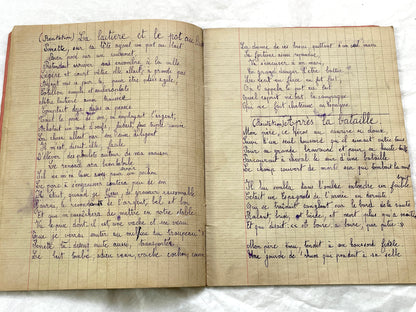 (Récitation) La laitière et le pot au
Perrette, sur sa tête ayant un pot au lait
Bien posé sur un coussinet,
Prétendait arriver sans encombre à la ville
Légère et court vêtue elle allait à grands pas
Ayant mis ce jour là, pour être plus agile,
Cotillon simple et
Notre laitière ainsi troussée
Comptait déjà dans sa pensée
Tout le prix de son lait, en employant l'argent,
Achetait un cent d'œufs, faisait une triple couvée,
La chose allait par son soin diligent
Il m'est, disait-elle, facile
D'élever des poulets autour de ma maison
Le renard sera bien habile
S'il ne m'en laisse assez pour avoir un cochon
Le porc à s'engraisser coûtera peu de son
Il était, quand je l'eus, de grosseur raisonnable
J'aurai, le revendant de l'argent, bel et bon
Et qui m'empêchera de mettre en notre étable
Vu le prix dont il est une vache et son veau
Que je verrai sauter au milieu du troupeau ?
Perrette là dessus saute aussi, transportée,
Le lait tombe, adieu veau, vache cochon, couvée
La dame de ces biens, quittant d'un œil marri
Sa fortune ainsi répandue,
Va s'excuser à son mari,
En grand danger d'être battue
Le récit en farce en fut fait,
On l'appela le pot au lait
Quel esprit ne bat la campagne
Qui ne fait châteaux en Espagne
(Récitation) Après la bataille.
Mon père, ce héros au sourire si doux,
Suivi d'un seul housard qu'il aimait entre tous
Pour sa grande bravoure et pour sa haute taille
Parcourait à cheval le soir d'une bataille
Le champ couvert de morts sur qui tombait la nuit
Il lui sembla dans l'ombre entendre un faible
C'était un Espagnol de l'armée en déroute
Qui se traînait sanglant sur le bord de la route
Râlant, brisé, livide, et mort plus qu'à moitié
Et qui disait : à boire à boire, par pitié
Mon père ému, tendit à son housard fidèle
Une gourde de rhum qui pendait à sa selle